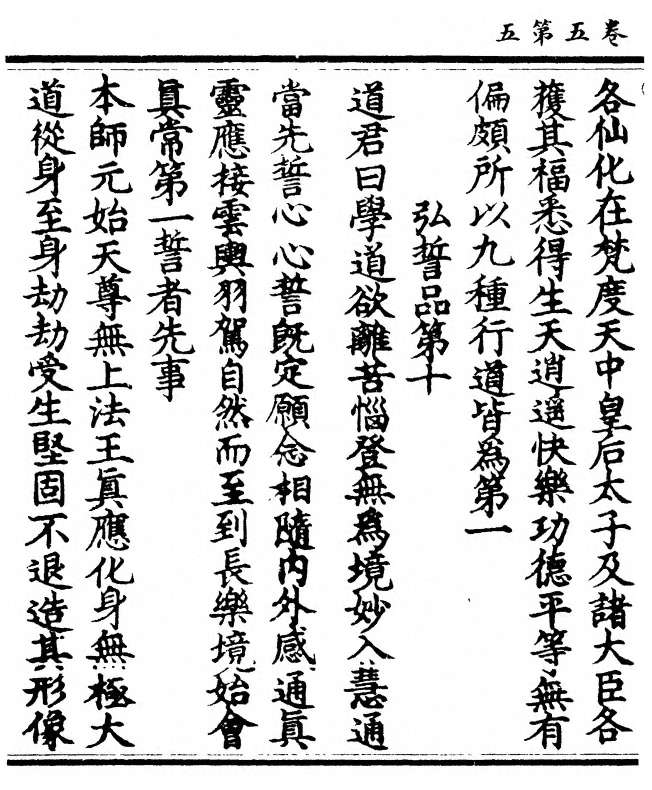 卷五第五
各仙化在梵度天中皇后太子及諸大臣各
獲其福悉得生天逍遥快樂功德平等無有
偏頗所以九種行道皆爲第一
弘誓品第十
道君曰學道欲離苦惱登無爲境妙入慧通
當先誓心心誓既定願念相隨内外感通眞
靈應接雲輿羽駕自然而至到長樂境始會
眞常第一誓者先事
本師元始天尊無上法王眞應化身無極大
道從身至身劫劫受生堅固不退造其形像